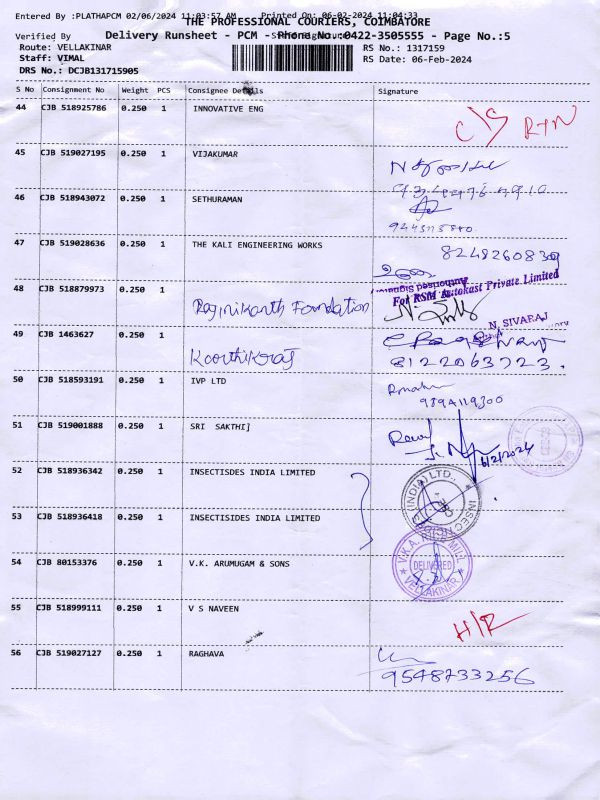 Entered By :PLATHAPCM 02/06/2024 11:03:57 AM Printed On: 06-02-2024 11:04:33
THE PROFESSIONAL COURIERS, COIMBATORE
Verified By Delivery Runsheet - PCM - Phone No.:0422-3505555 - Page No.:5
Route: VELLAKINAR RS No.: 1317159
Staff: VIMAL RS Date: 06-Feb-2024
DRS No.: DCJB131715905
S No Consignment No Weight PCS Consignee Details Signature
44 CJB 518925786 0.250 1 INNOVATIVE ENG
45 CJB 519027195 0.250 1 VIJAKUMAR
46 CJB 518943072 0.250 1 SETHURAMAN
47 CJB 519028636 0.250 1 THE KALI ENGINEERING WORKS
48 CJB 518879973 0.250 1 Raginikanth Foundation For RSM Autokast Private Limited
N. SIVARAJ
49 CJB 1463627 0.250 1 Keerthikraj
8122063723.
50 CJB 518593191 0.250 1 IVP LTD
51 CJB 519001888 0.250 1 SRI SAKTHI]
6/2/2024
52 CJB 518936342 0.250 1 INSECTISDES INDIA LIMITED
(INDIA) LTD.
53 CJB 518936418 0.250 1 INSECTISIDES INDIA LIMITED
54 CJB 80153376 0.250 1 V.K. ARUMUGAM & SONS
V.K.A. MILL
DELIVERED
VELLAKINAR
55 CJB 518999111 0.250 1 V S NAVEEN H/R
56 CJB 519027127 0.250 1 RAGHAVA
9548733256